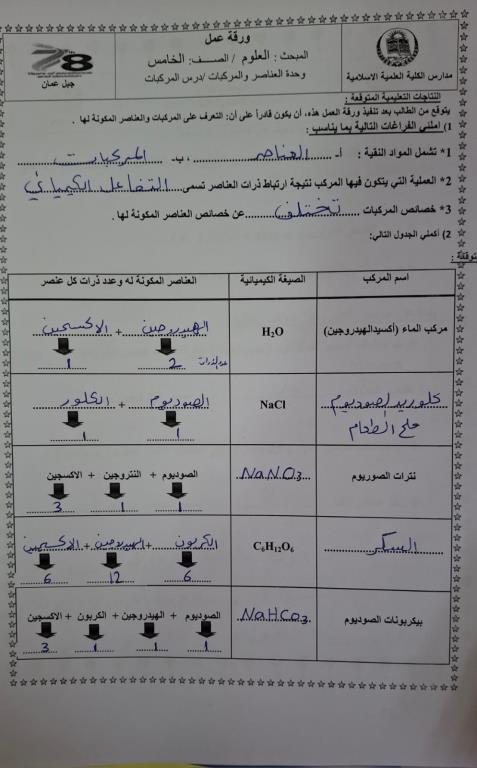 ورقة عمل
المبحث: العلوم / الصــف: الخامس
وحدة العناصر والمركبات /درس المركبات
مدارس الكلية العلمية الاسلامية
78
جبل عمان
النتاجات التعليمية المتوقعة :
يتوقع من الطالب بعد تنفيذ ورقة العمل هذه، أن يكون قادراً على أن: التعرف على المركبات والعناصر المكونة لها .
1) املئي الفراغات التالية بما يناسب :
1* تشمل المواد النقية : أ- العناصر ، ب- المركبات
2* العملية التي يتكون فيها المركب نتيجة ارتباط ذرات العناصر تسمى التفاعل الكيميائي
3* خصائص المركبات تختلف عن خصائص العناصر المكونة لها .
2) أكملي الجدول التالي:
اسم المركب الصيغة الكيميائية العناصر المكونة له وعدد ذرات كل عنصر
مركب الماء (أكسيدالهيدروجين) H₂O الهيدروجين + الاكسجين
عدد الذرات 2 1
كلوريد الصوديوم NaCl الصوديوم + الكلور
ملح الطعام 1 1
نترات الصوريوم NaNO₃ الصوديوم + النتروجين + الاكسجين
1 1 3
السكر C₆H₁₂O₆ الكربون + الهيدروجين + الاكسجين
6 12 6
بيكربونات الصوديوم NaHCO₃ الصوديوم + الهيدروجين + الكربون + الاكسجين
1 1 1 3